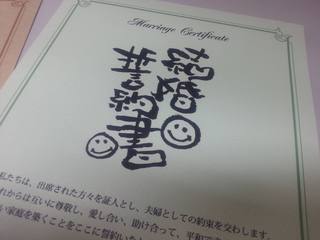 Marriage Certificate
結婚
誓約書
私たちは、出席された方々を証人とし、夫婦としての約束を交わします。
これからは互いに尊敬し、愛し合い、助け合って、平和で
い家庭を築くことをここに誓約いた